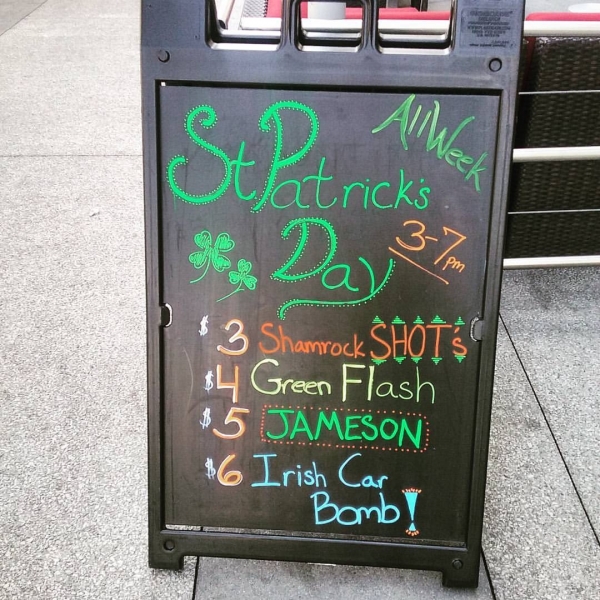 All Week
St Patrick's
3-7pm
Day
$3 Shamrock SHOT's
$4 Green Flash
$5 JAMESON
$6 Irish Car
Bomb!